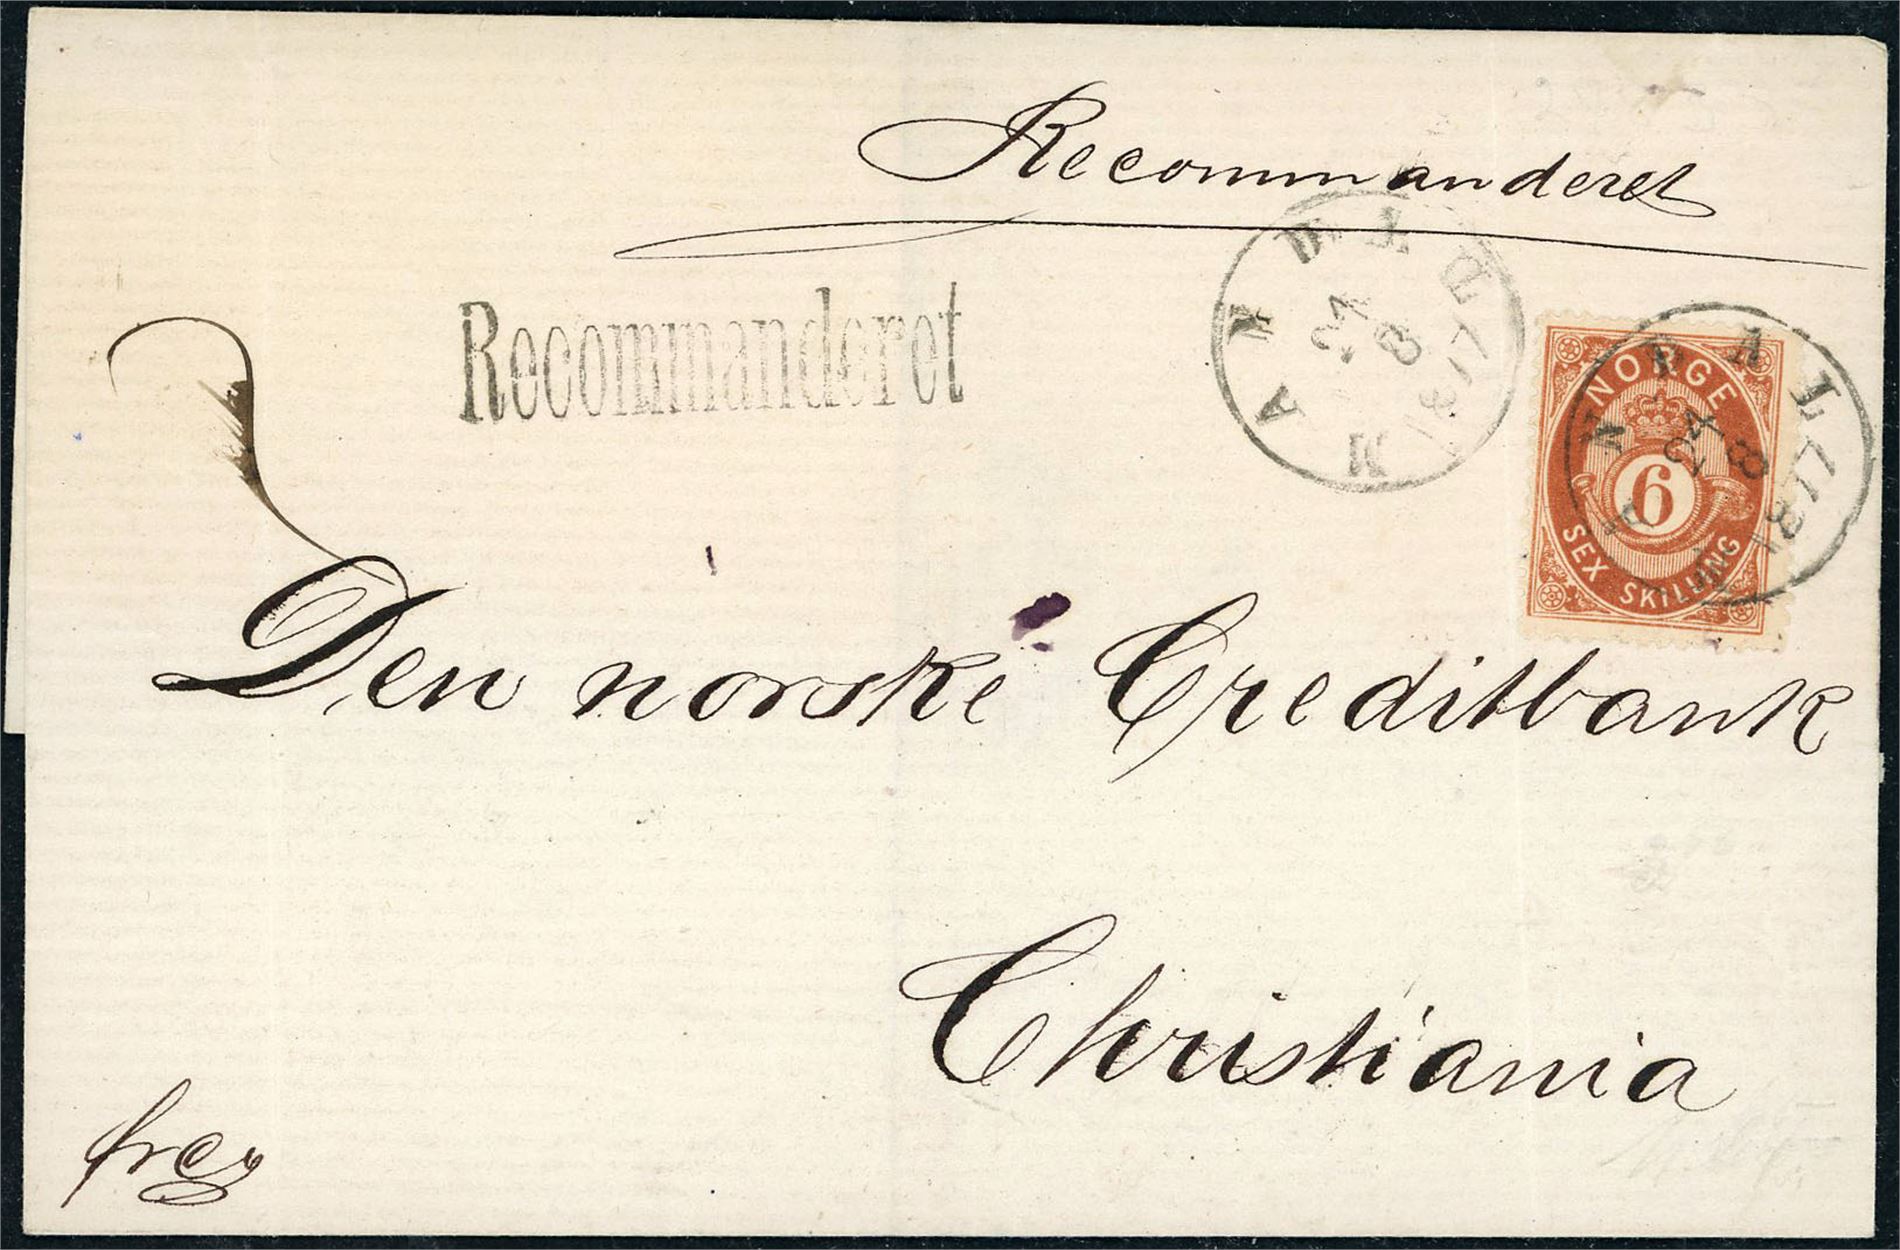 Recommanderet
Recommanderet
MANDAL
24
8
1877
NORGE
6
SEX SKILLING
MANDAL
24
8
1877
Den norske Creditbank
Christiania
frey